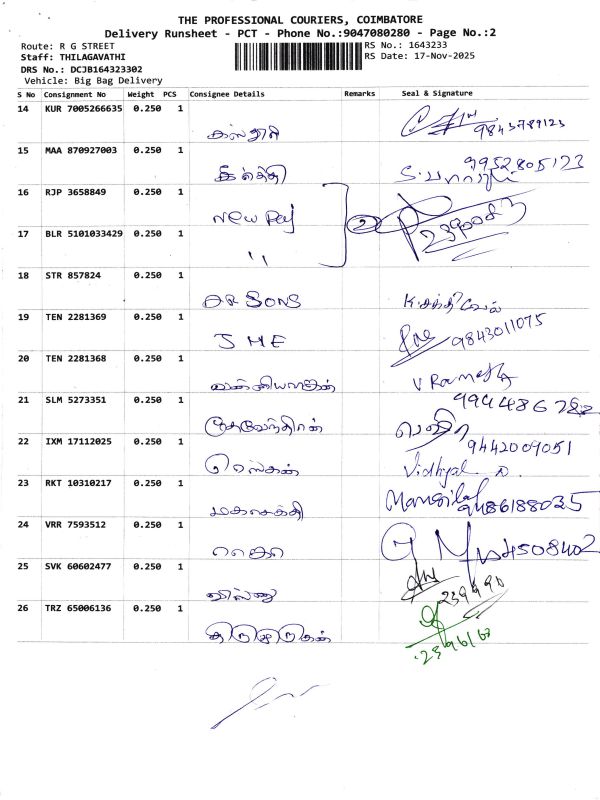 THE PROFESSIONAL COURIERS, COIMBATORE
Delivery Runsheet - PCT - Phone No.:9047080280 - Page No.:2
Route: R G STREET
RS No.: 1643233
Staff: THILAGAVATHI
RS Date: 17-Nov-2025
DRS No.: DCJB164323302
Vehicle: Big Bag Delivery
S No Consignment No Weight PCS Consignee Details Remarks Seal & Signature
14 KUR 7005266635 0.250 1
கஸ்தூரி 9843789123
15 MAA 870927003 0.250 1 9952805123
கீர்த்தி
16 RJP 3658849 0.250 1
New Raj 2
17 BLR 5101033429 0.250 1
"
18 STR 857824 0.250 1
AR SONS K.சக்திவேல்
19 TEN 2281369 0.250 1
SME 9843011075
20 TEN 2281368 0.250 1
V Ramesh
21 SLM 5273351 0.250 1
தேவேந்திரன்
22 IXM 17112025 0.250 1 9442009051
23 RKT 10310217 0.250 1
மகாசக்தி 9486188035
24 VRR 7593512 0.250 1
25 SVK 60602477 0.250 1
விஷ்ணு
26 TRZ 65006136 0.250 1